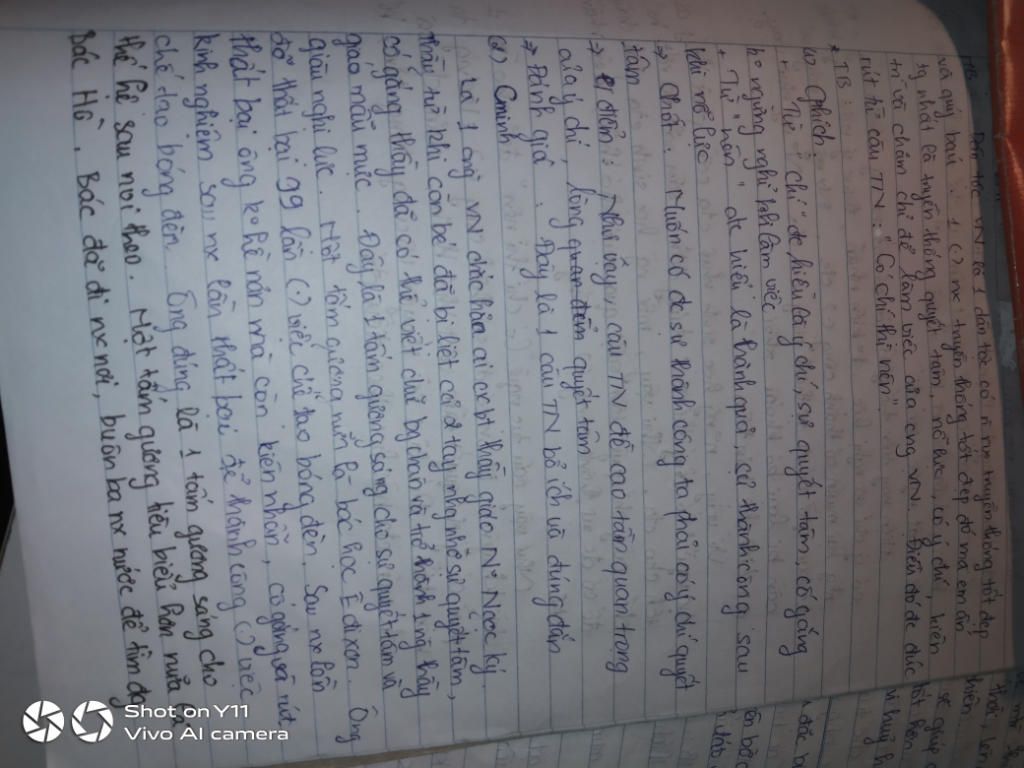 MB:
Dân tộc VN là 1 dân tộc có rất nx truyền thống tốt đẹp
và quý báu. 1 () nx truyền thống tốt đẹp đó mà em ấn
tg nhất là truyền thống quyết tâm, nỗ lực, có ý chí, kiên
trì và chăm chỉ để làm việc của ông VN. Điều đó đc đúc
rút từ câu TN "Có chí thì nên".
* TB:
a) Gthích
+ Từ "chí" đc hiểu là ý chí, sự quyết tâm, cố gắng
ko ngừng nghỉ khi làm việc
+ Từ "nên" đc hiểu là thành quả, sự thành công sau
khi nỗ lực
=> Chốt: Muốn có đc sự thành công ta phải có ý chí quyết
tâm
=> Q điểm: Như vậy câu TN đề cao tầm quan trọng
của ý chí, lòng quan đảm quyết tâm
=> Đánh giá: Đây là 1 câu TN bổ ích và đúng đắn
b) Cminh
Là 1 ng VN chắc hẳn ai cx bt thầy giáo Ng Ngọc Ký.
Thầy từ khi còn bé đã bị liệt cả 2 tay nhg nhờ sự quyết tâm,
cố gắng thầy đã có thể viết chữ bg chân và trở thành 1 ng thầy
giáo mẫu mực. Đây là 1 tấm gương sáng cho sự quyết tâm và
giàu nghị lực. Một tấm gương nữa là bác học Ê đi xơn. Ông
đã thất bại 99 lần () việc chế tạo bóng đèn. Sau nx lần
thất bại ông ko hề nản mà còn kiên nhẫn, cố gắng và rút
kinh nghiệm sau nx lần thất bại để thành công () việc
chế tạo bóng đèn. Ông đúng là 1 tấm gương sáng cho
thế hệ sau noi theo. Một tấm gương tiêu biểu hơn nữa là
Bác Hồ. Bác đã đi nx nơi, buôn ba nx nước để tìm đg
Shot on Y11
Vivo AI camera